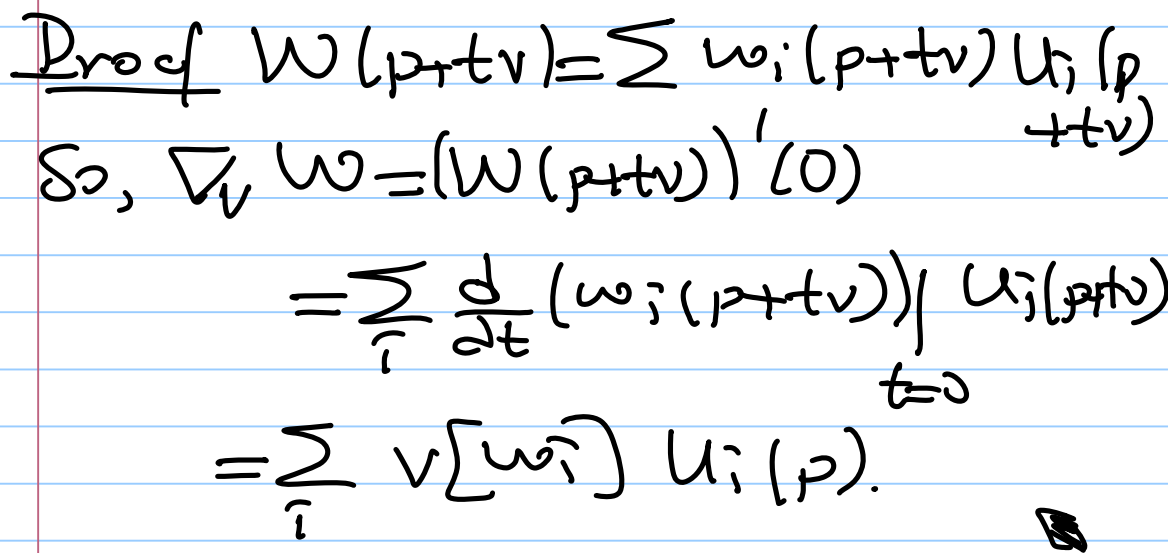 Proof W(p+tv)=∑ wᵢ(p+tv) Uᵢ(p
+tv)
So, ∇ᵥ W=(W(p+tv))'(0)
=∑ᵢ d/dt (wᵢ(p+tv))|ₜ₌₀ Uᵢ(p+0)
=∑ᵢ v[wᵢ] Uᵢ(p).